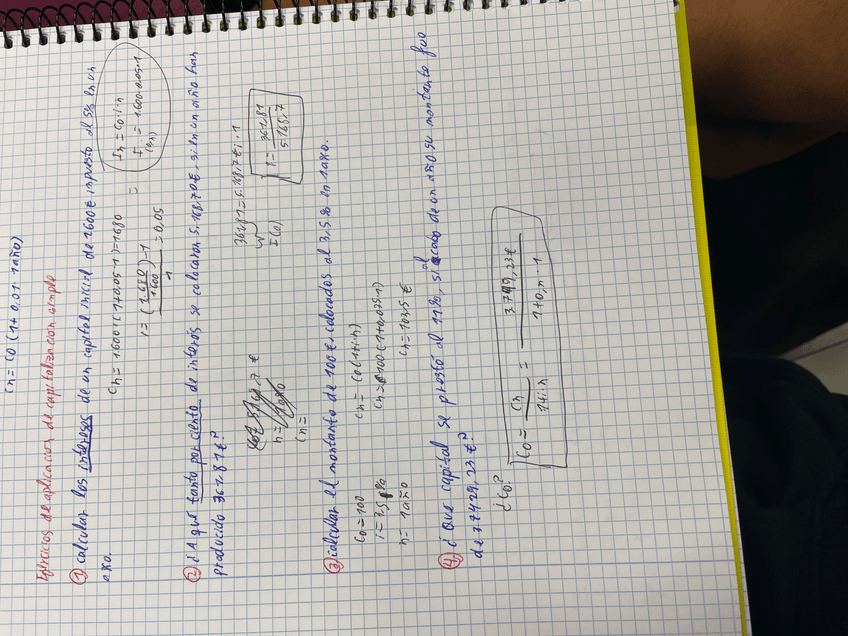 Cn = C0 (1+0.01· 1año)
Ejercicios de aplicación de capitalización simple
① calcular los intereses de un capital inicial de 1600 € inpuesto al 5% en un
año.
Cn = 1600·(1+0,05·1)=1680
In = C0·i·n
I(0,n) = 1.600·0,05·1
i = (1.680/1600)-1 / 1 = 0,05
② ¿A que tanto por ciento de interés se colocaron 5.168,70€. si en un año han
producido 361,81€?
n =
Cn =
361,81 = 5.168,7 · i · 1
I(0)
i = 361,81 / 5.168,7
③ calcular el montante de 100 €. colocados al 3,5% en 1 año.
C0 = 100
i = 3,5%
n = 1 año
Cn = C0(1+i·n)
Cn = 100(1+0,035·1)
Cn = 103,5 €
④ ¿Que capital se prestó al 11%, si al cabo de un año su montante fue
de 37429,23 €?
¿C0?
C0 = Cn / 1+i·n = 3.749,23€ / 1+0,11·1